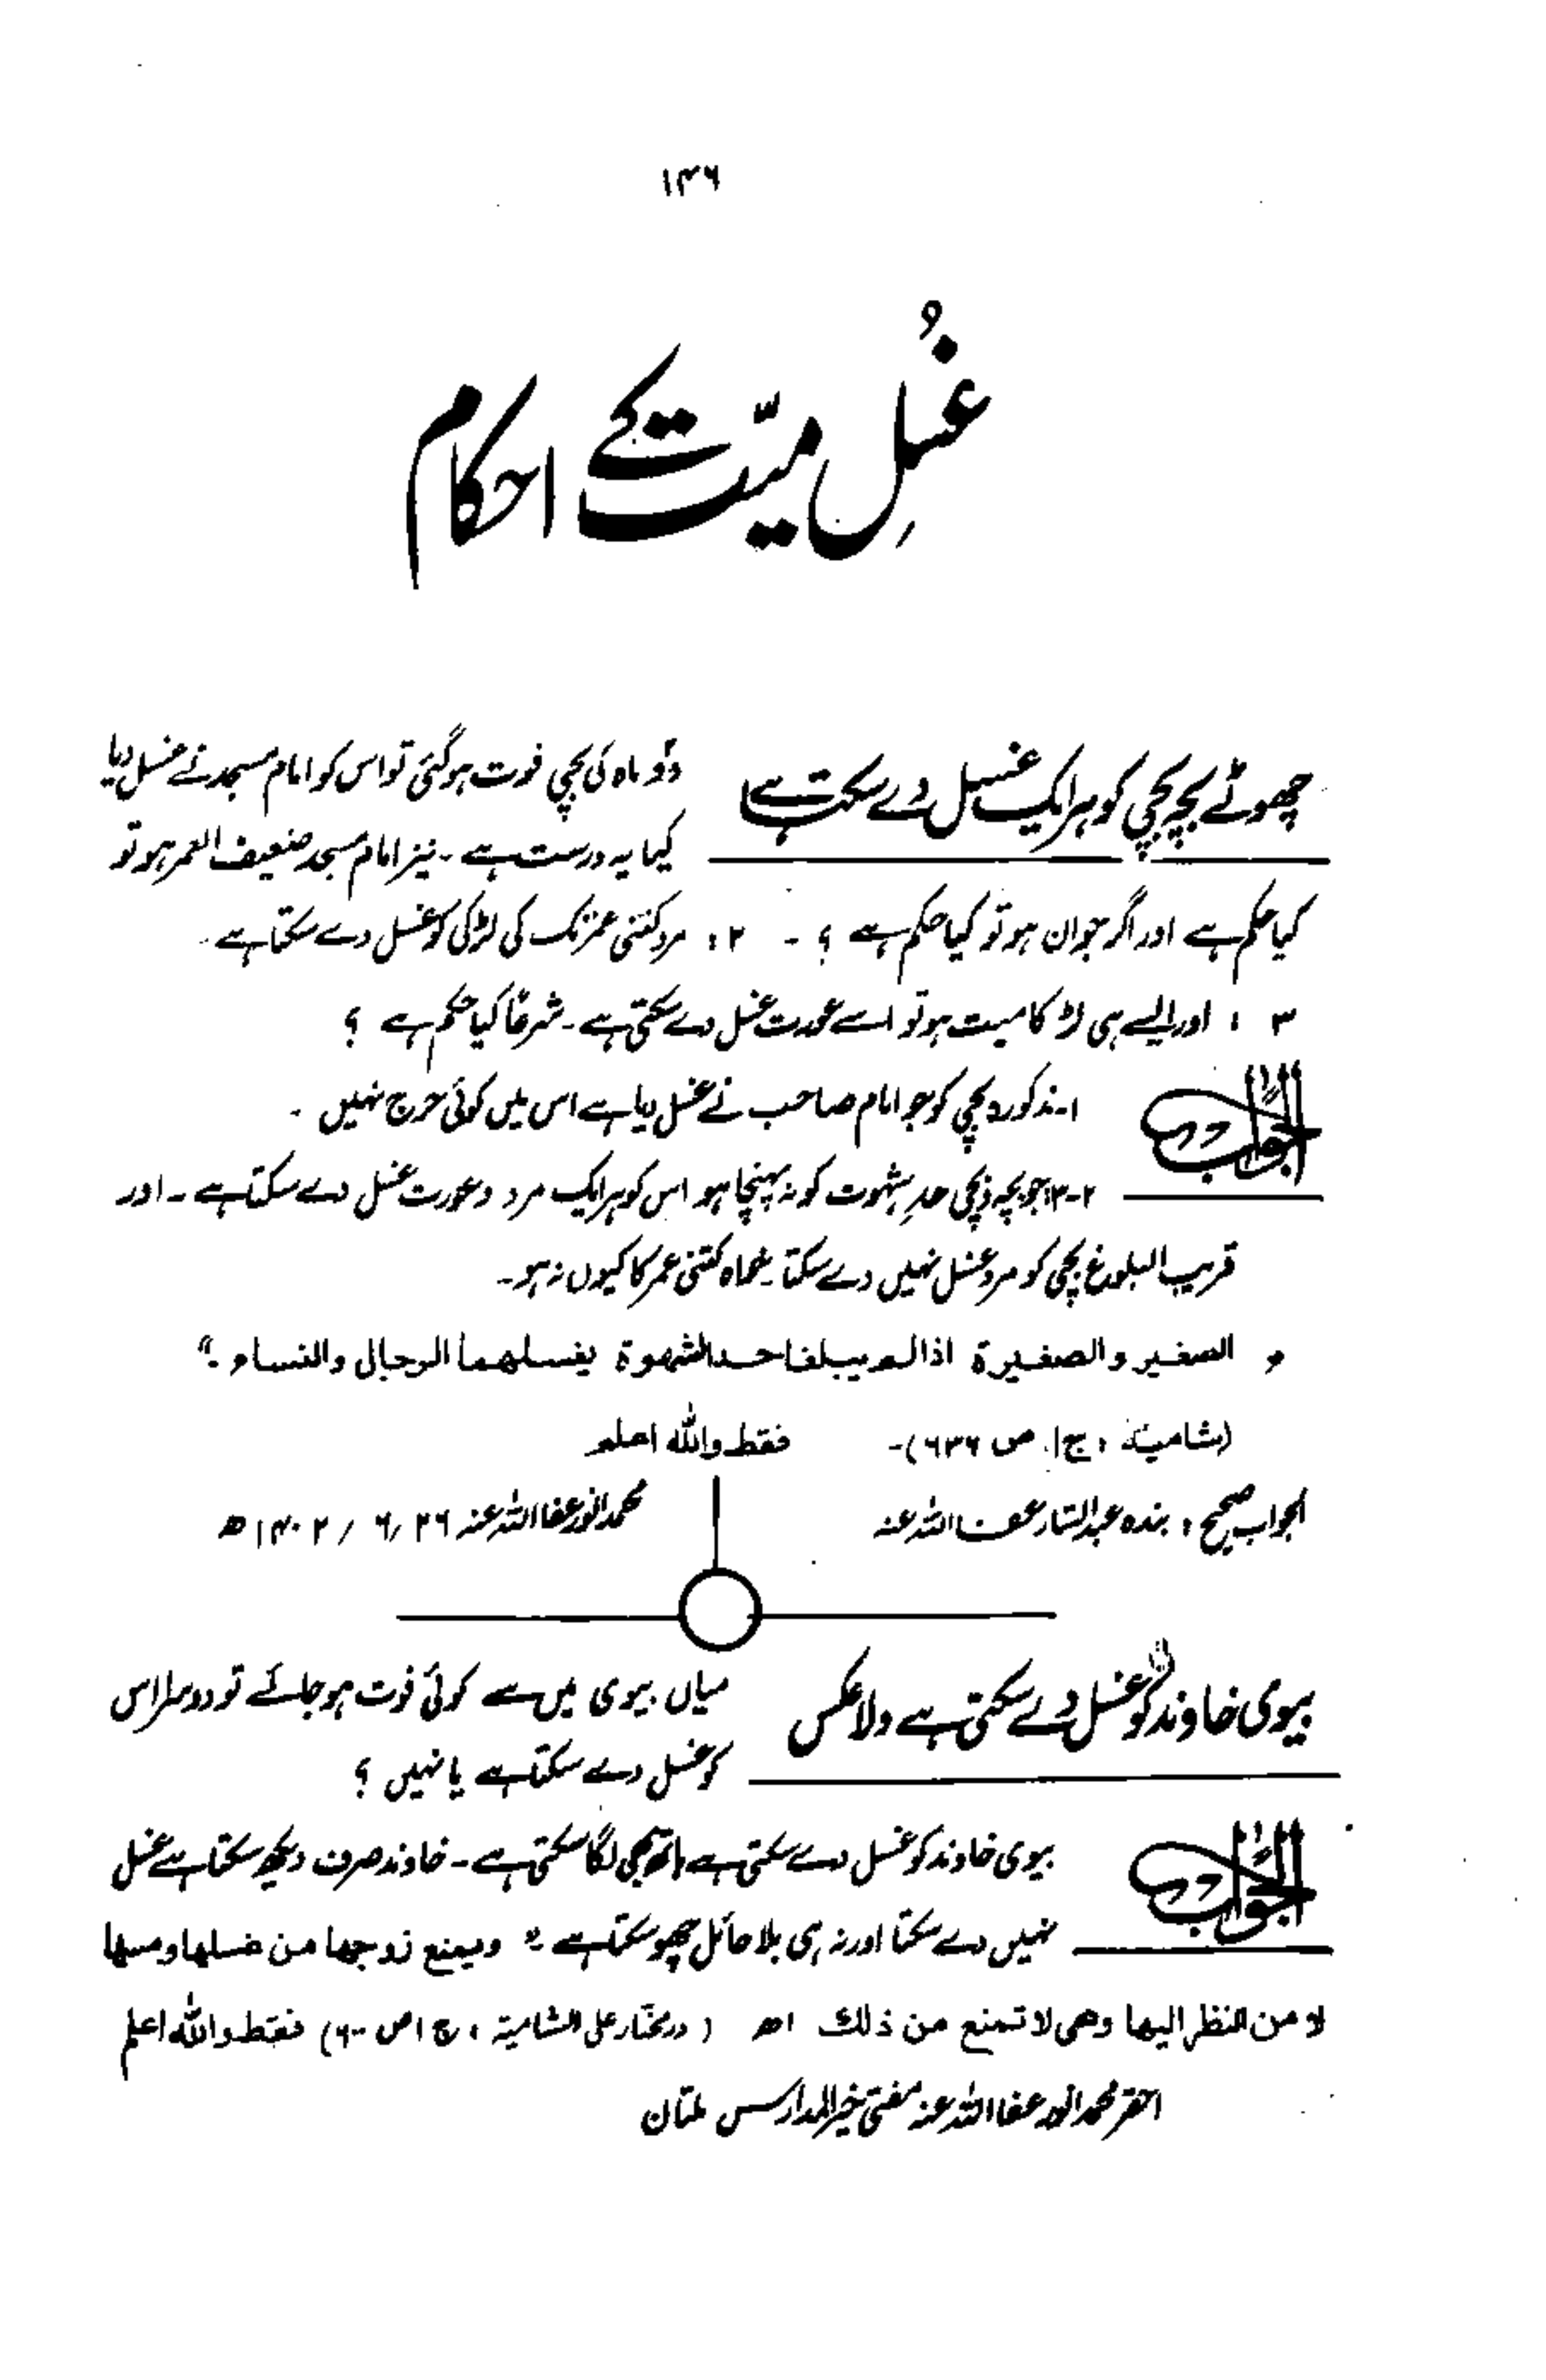 ۱۳۶
غُسلِ میّت کے احکام
چھوٹے بچہ بچی کو ہر ایک غسل دے سکتا ہے
دو ماہ کی بچی فوت ہوگئی تو اس کو امام مسجد نے غسل دیا
کیا یہ درست ہے ۔ نیز امام مسجد ضعیف العمر ہو تو
کیا حکم ہے اور اگر جوان ہو تو کیا حکم ہے ؟ ۔ ۲ : مرد کتنی عمر تک کی لڑکی کو غسل دے سکتا ہے ۔
۳ : اور ایسے ہی لڑکا میت ہو تو اسے عورت غسل دے سکتی ہے ۔ شرعاً کیا حکم ہے ؟
الجواب
۱۔ مذکورہ بچی کو جو امام صاحب نے غسل دیا ہے اس میں کوئی حرج نہیں ۔
۲-۳ جو بچہ و بچی حدِ شہوت کو نہ پہنچا ہو اس کو ہر ایک مرد و عورت غسل دے سکتا ہے ۔ اور
قریب البلوغ بچی کو مرد غسل نہیں دے سکتا خواہ کتنی عمر کا کیوں نہ ہو ۔
" الصغیر والصغیرة اذا لم یبلغا حد الشھوة یغسلھما الرجال والنساء ۔"
(شامیۃ ، ج۱، ص ۶۳۶)۔ فقط واللہ اعلم
الجواب صحیح ، بندہ عبدالستار عفا اللہ عنہ
محمد انور عفا اللہ عنہ ۲۶ / ۶ / ۱۴۰۲ھ
بیوی خاوند کو غسل دے سکتی ہے ولا عکس
میاں بیوی میں سے کوئی فوت ہو جائے تو دوسرا اس
کو غسل دے سکتا ہے یا نہیں ؟
الجواب
بیوی خاوند کو غسل دے سکتی ہے ہاتھ بھی لگا سکتی ہے ۔ خاوند صرف دیکھ سکتا ہے غسل
نہیں دے سکتا اور نہ ہی بلا حائل چھو سکتا ہے ۔" ویمنع زوجھا من غسلھا ومسھا
لا من النظر الیھا وھی لا تمنع من ذلک اھ ( درمختار علی الشامیۃ ، ج ۱ ص ۶۰۰) فقط واللہ اعلم
احقر محمد انور عفا اللہ عنہ مفتی خیر المدارس ملتان